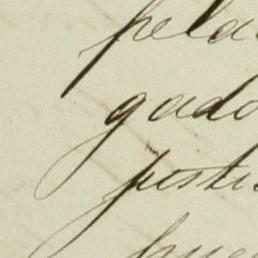 pela
gado
justi